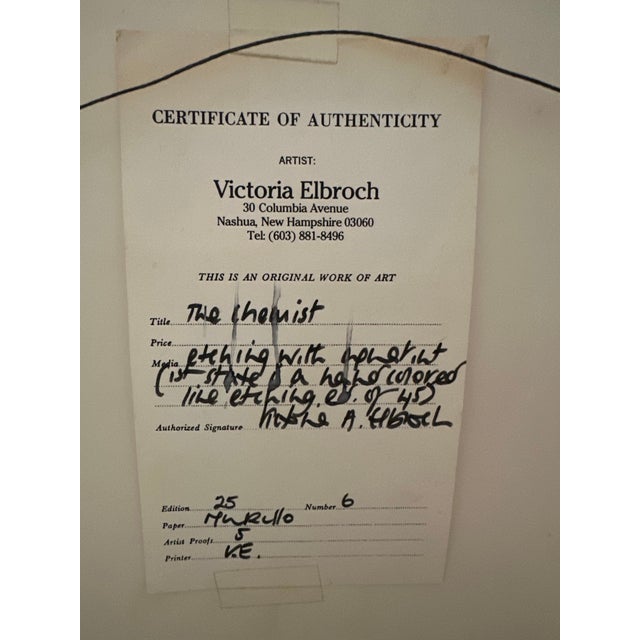 CERTIFICATE OF AUTHENTICITY
ARTIST:
Victoria Elbroch
30 Columbia Avenue
Nashua, New Hampshire 03060
Tel: (603) 881-8496
THIS IS AN ORIGINAL WORK OF ART
Title The Chemist
Price
Media etching with aquatint
(1st state is a hand colored
line etching. ed. of 45)
Authorized Signature A. Elbroch
Edition 25 Number 6
Paper Murillo
Artist Proofs 5
Printer V.E.